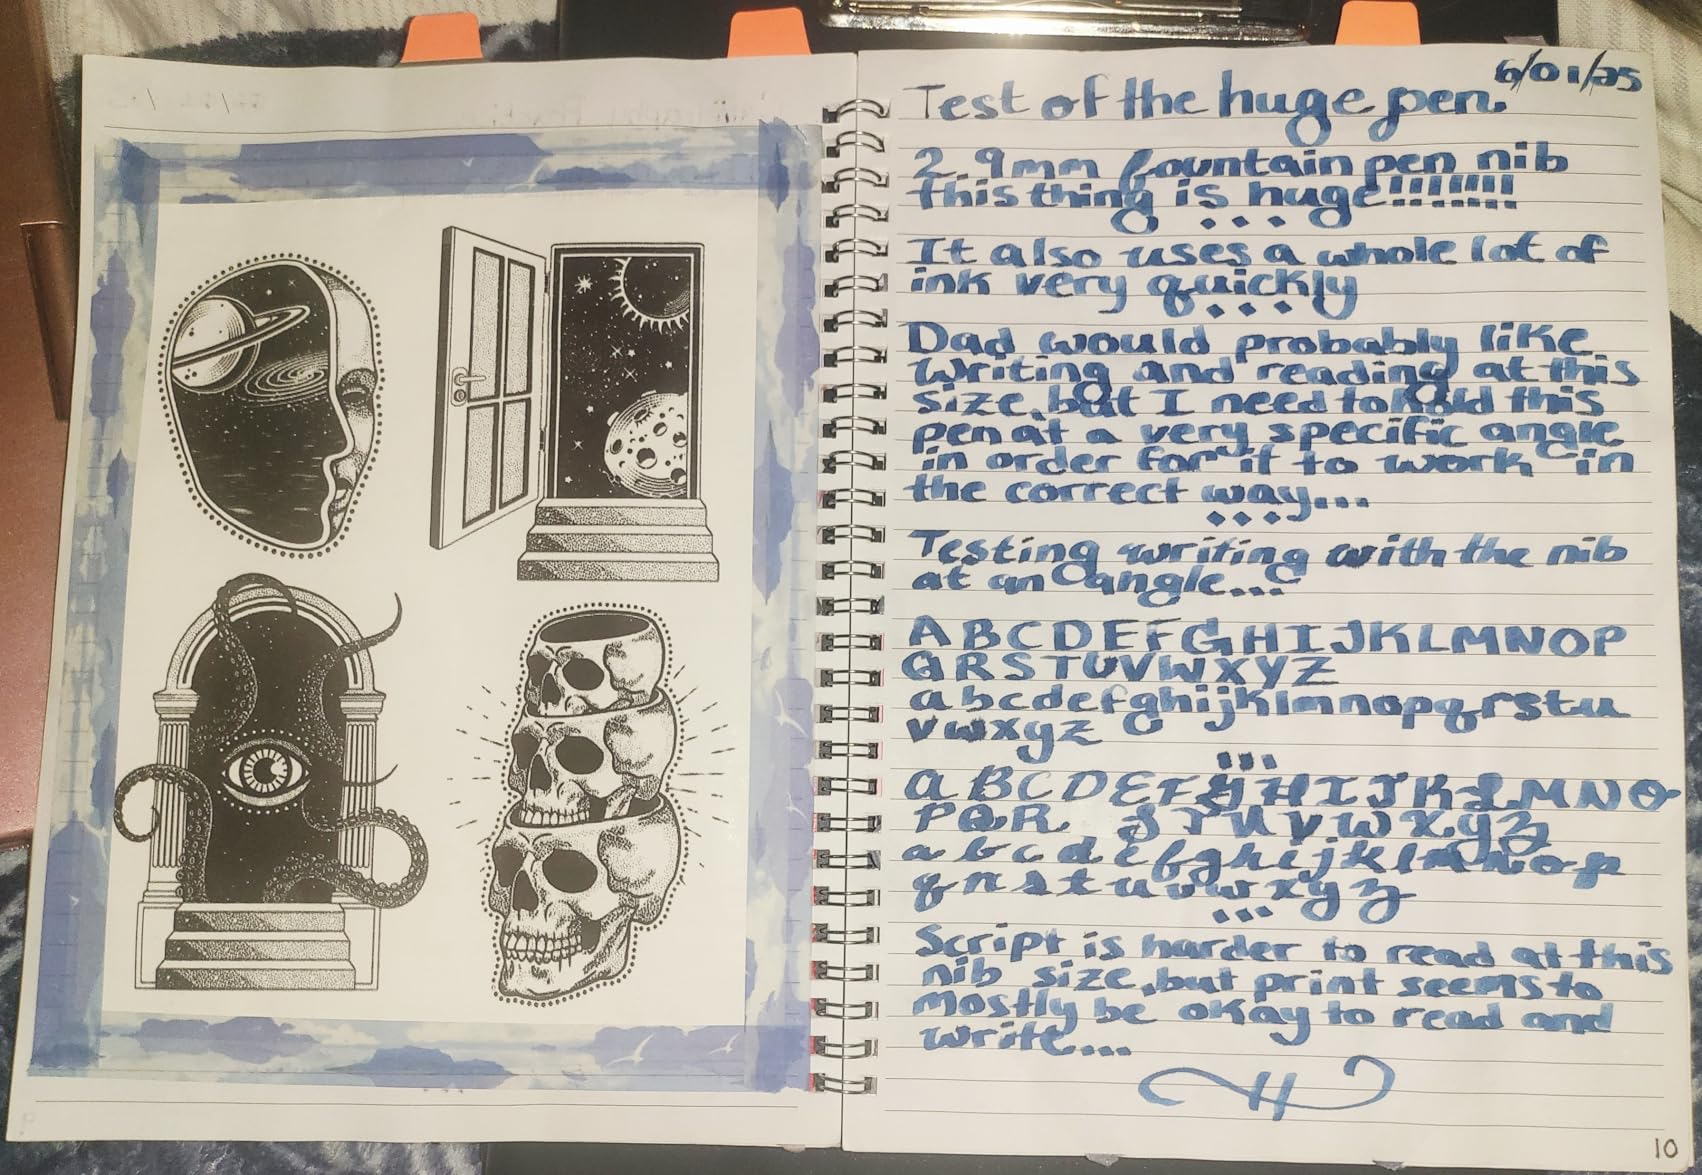 6/01/25
Test of the huge pen.
2.9mm fountain pen nib
this thing is huge!!!!!!!!
...
It also uses a whole lot of
ink very quickly
...
Dad would probably like
writing and reading at this
size, but I need to hold this
pen at a very specific angle
in order for it to work in
the correct way...
...
Testing writing with the nib
at an angle...
A B C D E F G H I J K L M N O P
Q R S T U V W X Y Z
a b c d e f g h i j k l m n o p q r s t u
v w x y z
...
A B C D E F G H I J K L M N O
P Q R S T U V W X Y Z
a b c d e f g h i j k l m n o p
q r s t u v w x y z
...
Script is harder to read at this
nib size, but print seems to
mostly be okay to read and
write...
10